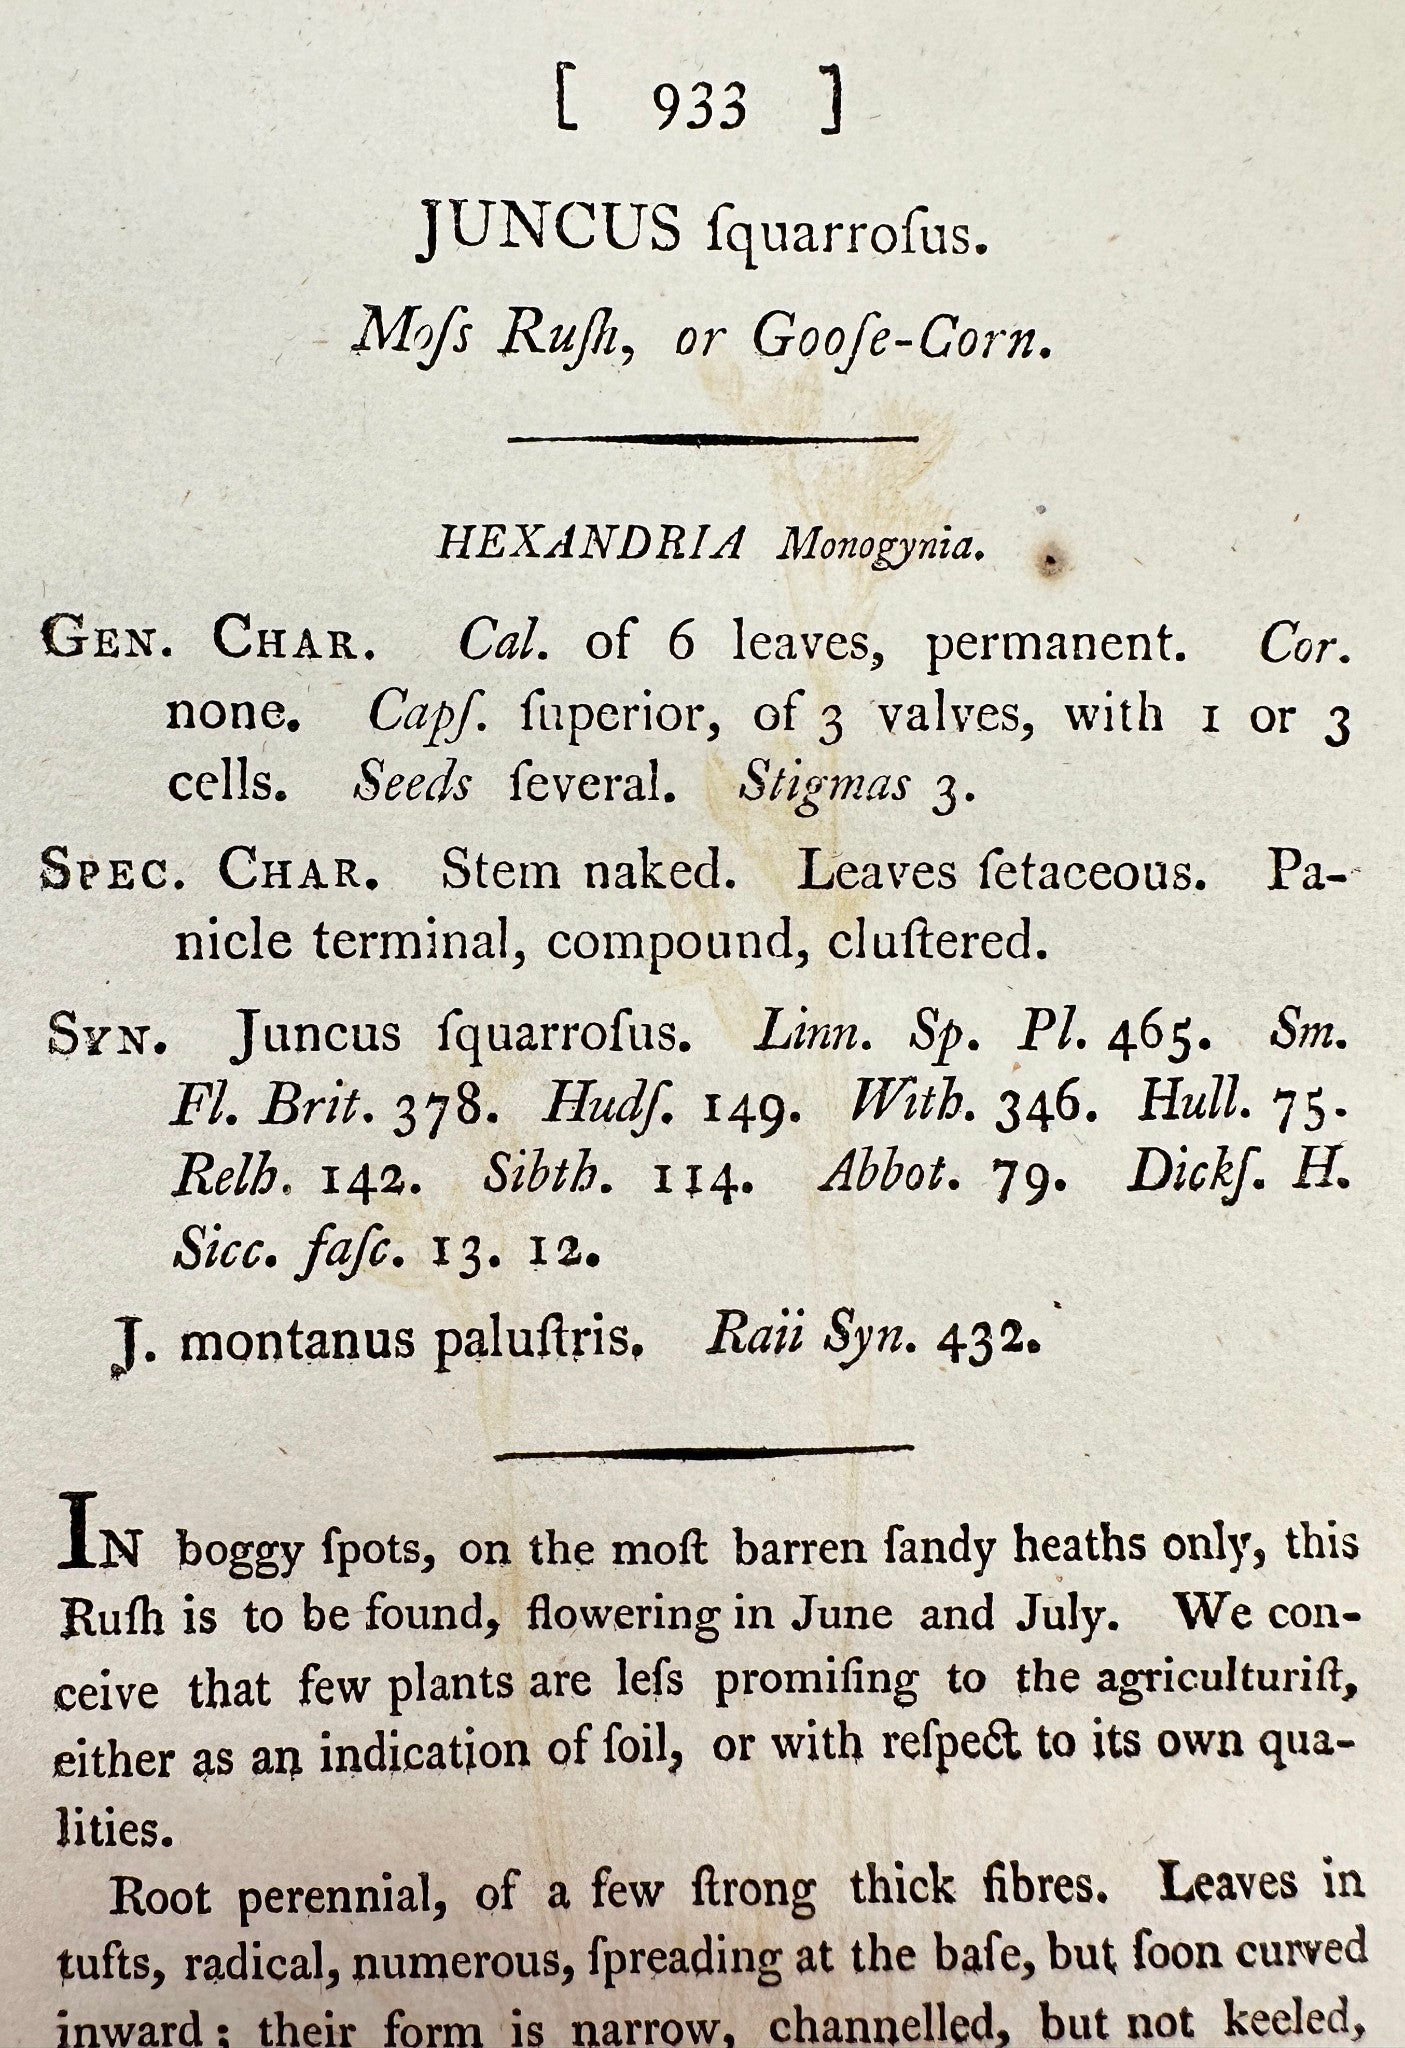 [ 933 ]
JUNCUS ſquarroſus.
Moſs Ruſh, or Gooſe-Corn.
HEXANDRIA Monogynia.
GEN. CHAR. Cal. of 6 leaves, permanent. Cor.
none. Capſ. ſuperior, of 3 valves, with 1 or 3
cells. Seeds ſeveral. Stigmas 3.
SPEC. CHAR. Stem naked. Leaves ſetaceous. Pa-
nicle terminal, compound, cluſtered.
SYN. Juncus ſquarroſus. Linn. Sp. Pl. 465. Sm.
Fl. Brit. 378. Hudſ. 149. With. 346. Hull. 75.
Relh. 142. Sibth. 114. Abbot. 79. Dickſ. H.
Sicc. faſc. 13. 12.
J. montanus paluſtris. Raii Syn. 432.
IN boggy ſpots, on the moſt barren ſandy heaths only, this
Ruſh is to be found, flowering in June and July. We con-
ceive that few plants are leſs promiſing to the agriculturiſt,
either as an indication of ſoil, or with reſpect to its own qua-
lities.
Root perennial, of a few ſtrong thick fibres. Leaves in
tufts, radical, numerous, ſpreading at the baſe, but ſoon curved
inward; their form is narrow, channelled, but not keeled,